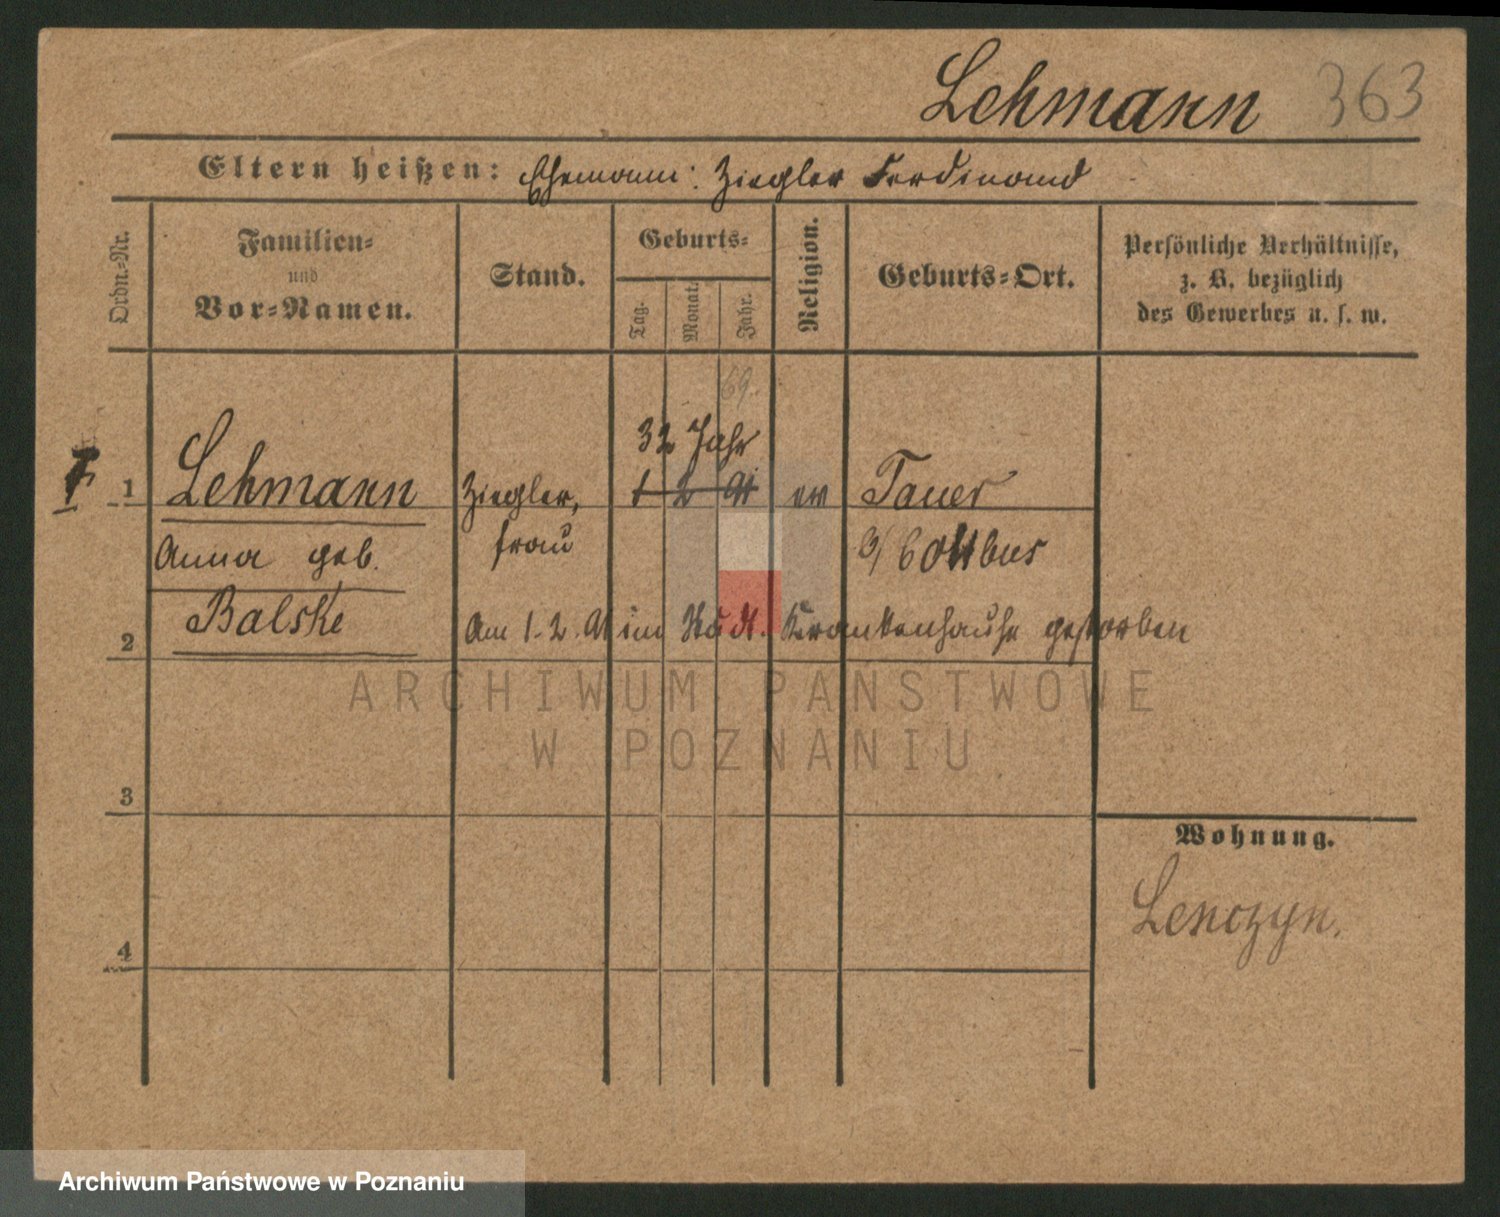 Lehmann 363
Eltern heißen: Ehemann: Ziegler Ferdinand
Ordn.=Nr.
Familien=
und
Vor=Namen.
Stand.
Geburts=
Tag.
Monat.
Jahr.
Religion.
Geburts=Ort.
Persönliche Verhältnisse,
z. B. bezüglich
des Gewerbes u. s. w.
69.
32 Jahr
1 Lehmann Ziegler, 1 2 91 ev Tauer
Anna geb. frau Cottbus
2 Balske Am 1. 2. 91 im Stadt. Krankenhause gestorben
ARCHIWUM PAŃSTWOWE
W POZNANIU
3
Wohnung.
Lenczyn.
4
Archiwum Państwowe w Poznaniu